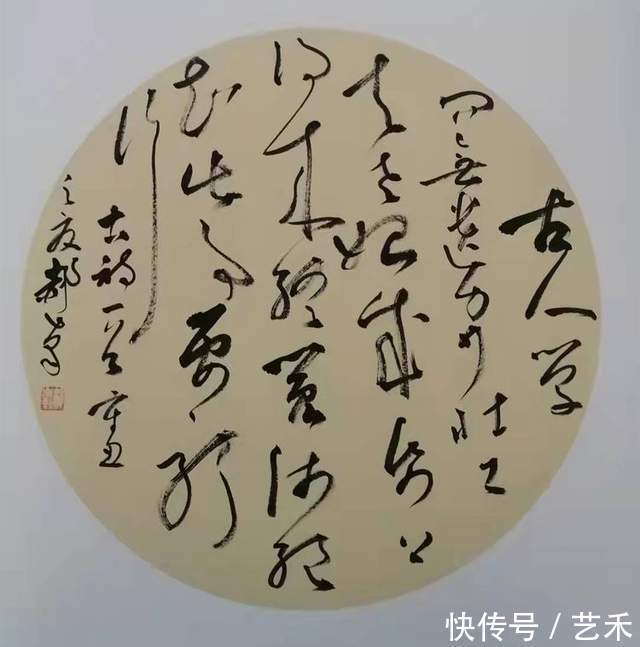 古人学
问无遗力少壮工
夫老始成纸上
得来终觉浅绝
知此事要躬
行
古诗一首辛丑
之夏郝
快传号 / 艺禾